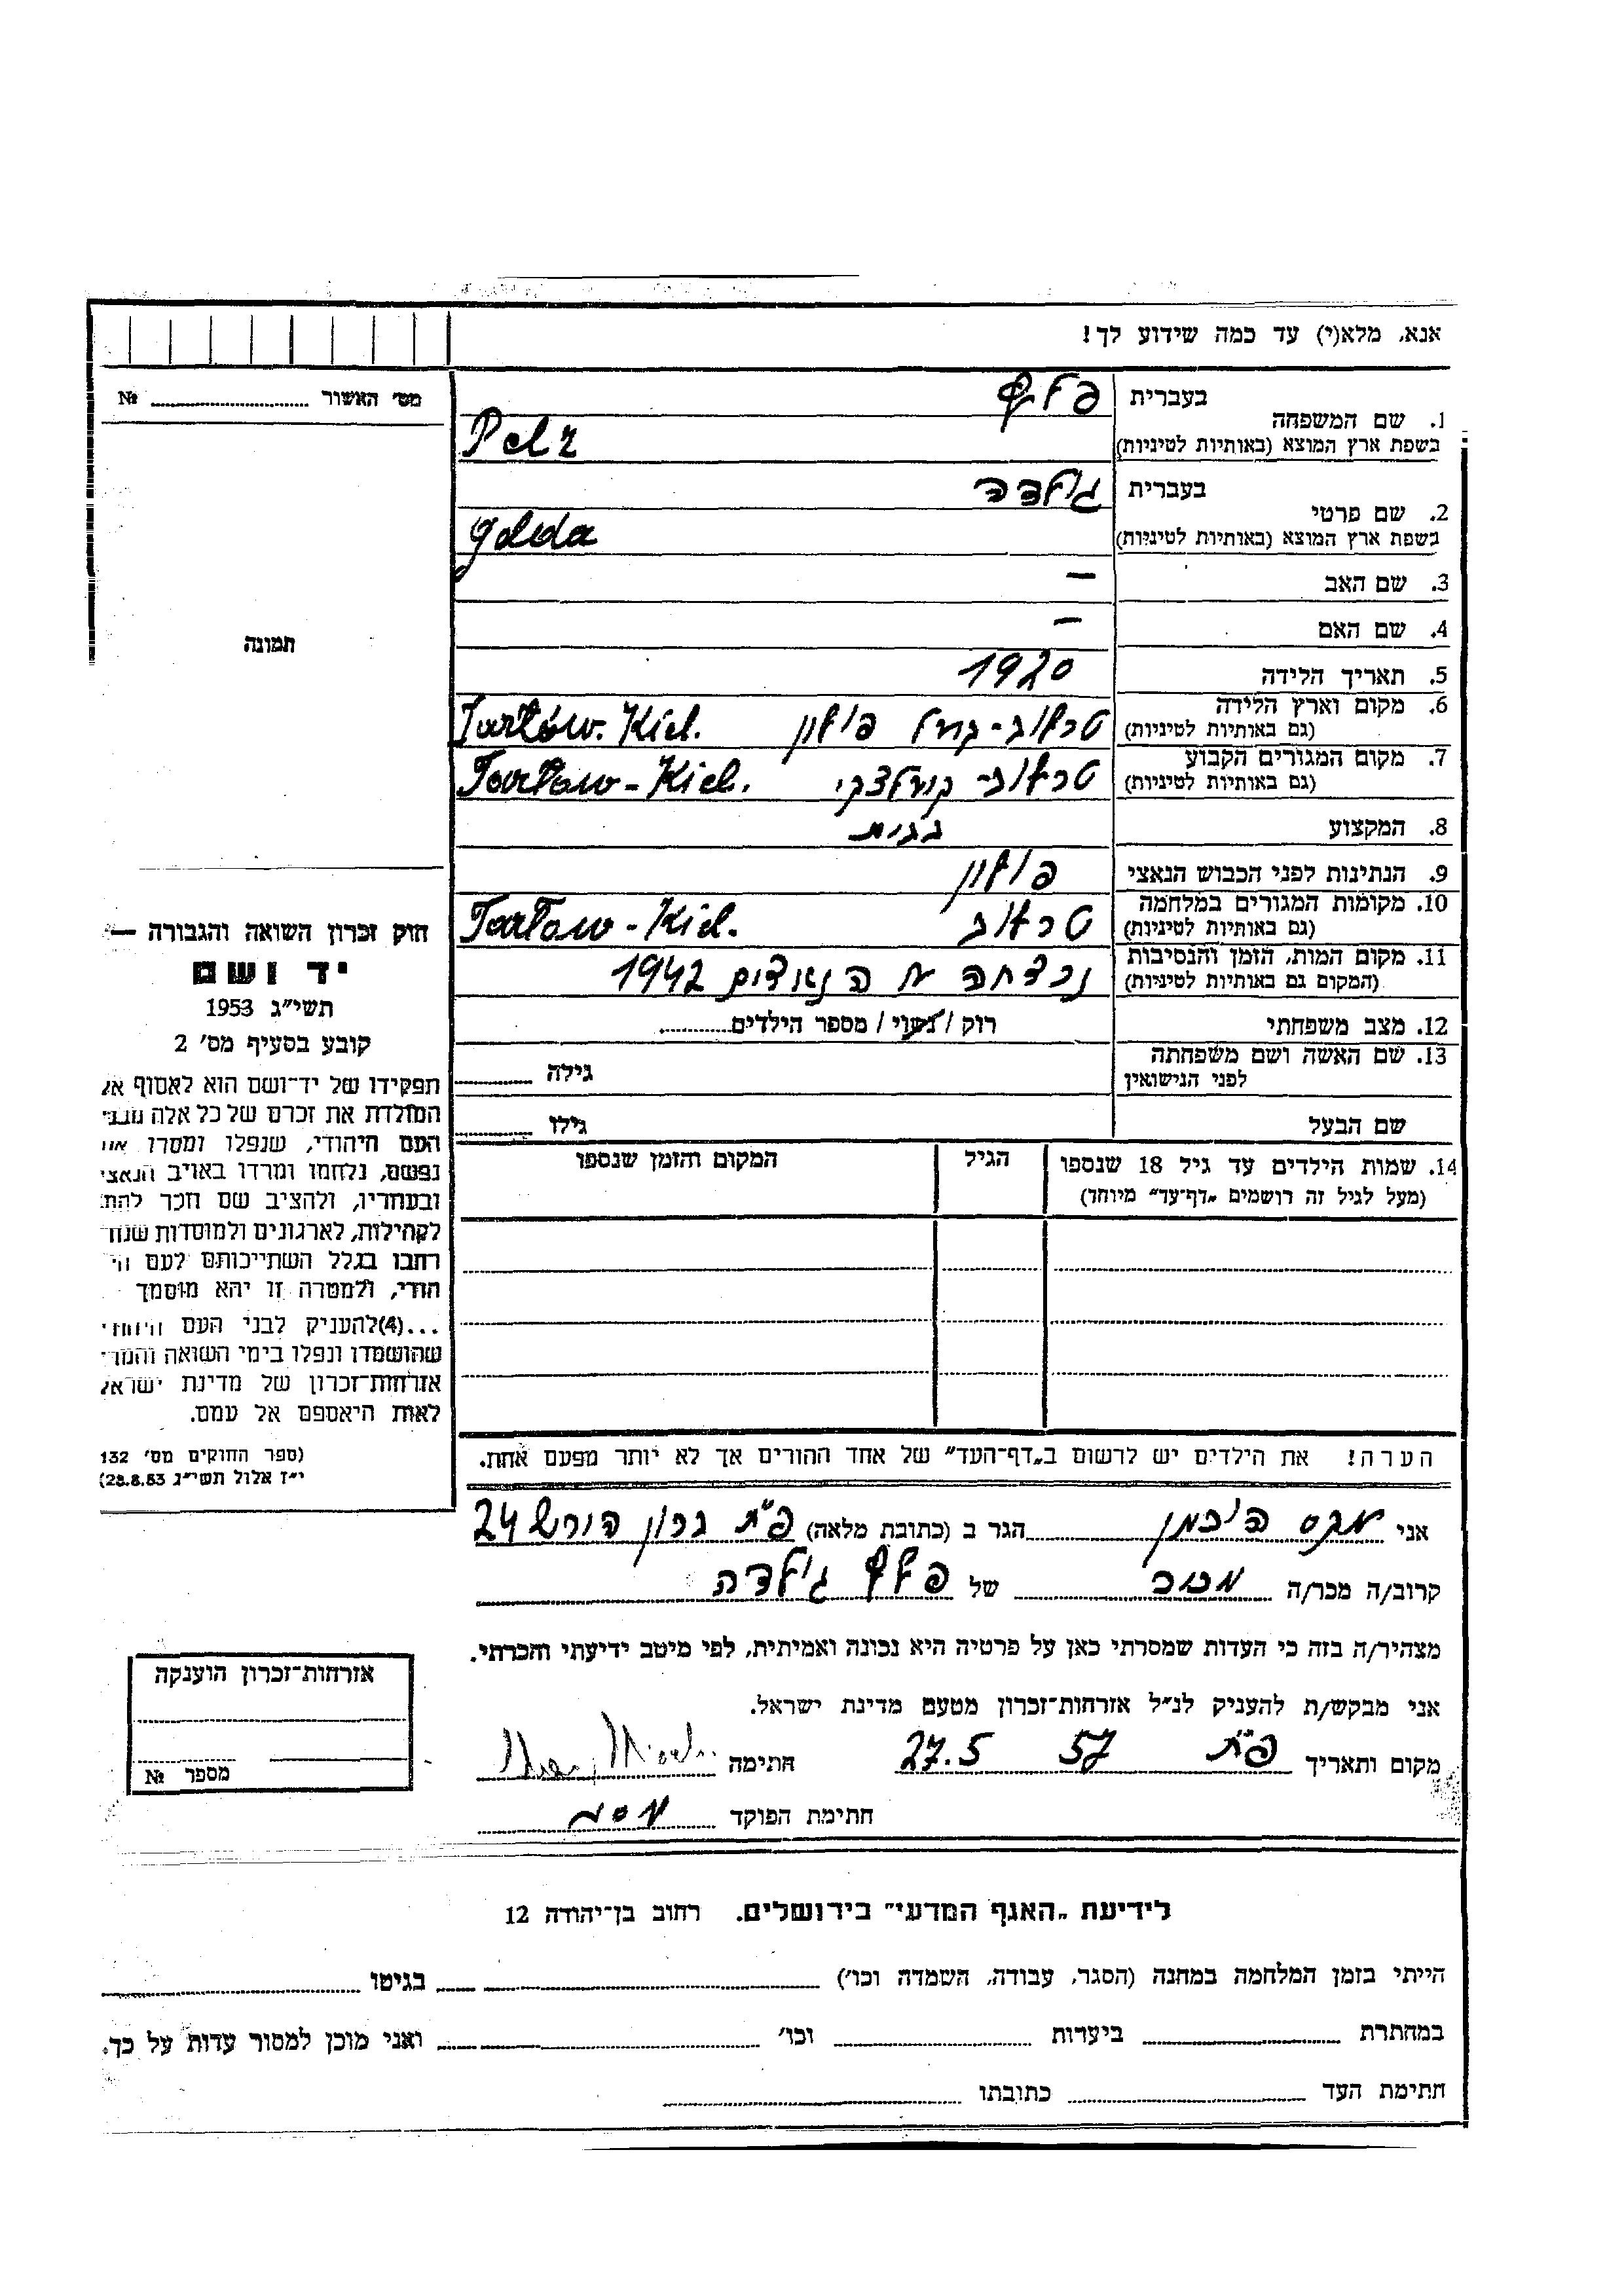 אנא, מלא(י) עד כמה שידוע לך!
בעברית פלץ
1. שם המשפחה
בשפת ארץ המוצא (באותיות לטיניות) Pelz
בעברית גולדה
2. שם פרטי
בשפת ארץ המוצא (באותיות לטיניות) Golda
3. שם האב –
4. שם האם –
5. תאריך הלידה 1920
6. מקום וארץ הלידה
(גם באותיות לטיניות) פולין Tarłów. Kiel.
7. מקום המגורים הקבוע
(גם באותיות לטיניות) Tarłow - Kiel.
8. המקצוע
9. הנתינות לפני הכבוש הנאצי פולין
10. מקומות המגורים במלחמה
(גם באותיות לטיניות) Tarłow - Kiel.
11. מקום המות, הזמן והנסיבות
(המקום גם באותיות לטיניות) 1942
12. מצב משפחתי רוק / נשוי / מספר הילדים
13. שם האשה ושם משפחתה
לפני הנישואין גילה
שם הבעל גילו
14. שמות הילדים עד גיל 18 שנספו הגיל המקום והזמן שנספו
(מעל לגיל זה רושמים „דף־עד״ מיוחד)
הערה! את הילדים יש לרשום ב„דף־העד״ של אחד ההורים אך לא יותר מפעם אחת.
מס׳ האשור №
תמונה
חוק זכרון השואה והגבורה —
יד ושם
תשי״ג 1953
קובע בסעיף מס׳ 2
תפקידו של יד־ושם הוא לאסוף אל
המולדת את זכרם של כל אלה מבני
העם היהודי, שנפלו ומסרו את
נפשם, נלחמו ומרדו באויב הנאצי
ובעוזריו, ולהציב שם וזכר להם,
לקהילות, לארגונים ולמוסדות שנח־
רבו בגלל השתייכותם לעם הי־
הודי, ולמטרה זו יהא מוסמך
...(4)להעניק לבני העם היהודי
שהושמדו ונפלו בימי השואה והמרי
אזרחות־זכרון של מדינת ישראל
לאות היאספם אל עמם.
(ספר החוקים מס׳ 132
י״ז אלול תשי״ג 28.8.53)
אני מקס הגר ב (כתובת מלאה) פ״ת 24
קרוב/ה מכר/ה מכיר של פלץ גולדה
מצהיר/ה בזה כי העדות שמסרתי כאן על פרטיה היא נכונה ואמיתית, לפי מיטב ידיעתי והכרתי.
אני מבקש/ת להעניק לנ״ל אזרחות־זכרון מטעם מדינת ישראל.
מקום ותאריך פ״ת 57 27.5 חתימה
חתימת הפוקד
אזרחות־זכרון הוענקה
מספר №
לידיעת „האגף המדעי״ בירושלים. רחוב בן־יהודה 12
הייתי בזמן המלחמה במחנה (הסגר, עבודה, השמדה וכו׳) בגיטו
במחתרת ביערות וכו׳ ואני מוכן למסור עדות על כך.
חתימת העד כתובתו